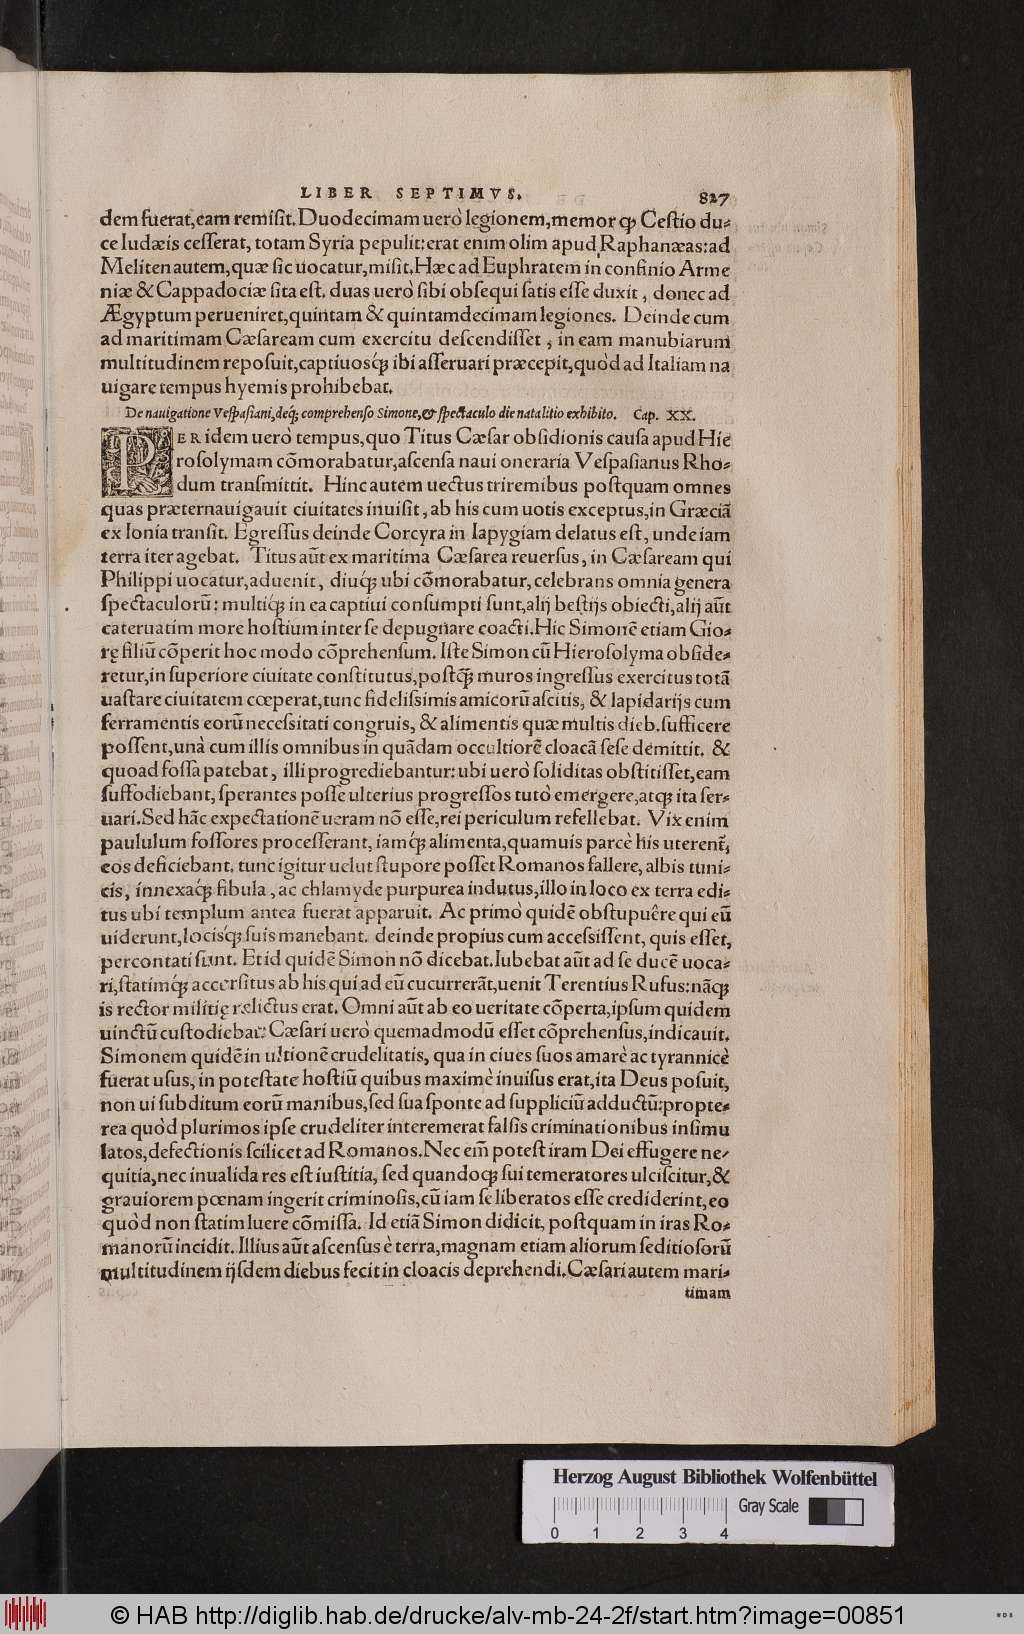 LIBER SEPTIMVS. 827
dem fuerat, eam remisit. Duodecimam uerò legionem, memor ꝙ Cestio du-
ce Iudæis cesserat, totam Syria pepulit: erat enim olim apud Raphanæas: ad
Meliten autem, quæ sic uocatur, misit. Hæc ad Euphratem in confinio Arme
niæ & Cappadociæ sita est. duas uerò sibi obsequi satis esse duxit, donec ad
Ægyptum perueniret, quintam & quintamdecimam legiones. Deinde cum
ad maritimam Cæsaream cum exercitu descendisset, in eam manubiarum
multitudinem reposuit, captiuosq́; ibi asseruari præcepit, quòd ad Italiam na
uigare tempus hyemis prohibebat.
De nauigatione Vespasiani, deq́; comprehenso Simone, & spectaculo die natalitio exhibito. Cap. XX.
PER idem uerò tempus, quo Titus Cæsar obsidionis causa apud Hie
rosolymam cõmorabatur, ascensa naui oneraria Vespasianus Rho-
dum transmittit. Hinc autem uectus triremibus postquam omnes
quas præternauigauit ciuitates inuisit, ab his cum uotis exceptus, in Græciã
ex Ionia transit. Egressus deinde Corcyra in Iapygiam delatus est, unde iam
terra iter agebat. Titus aũt ex maritima Cæsarea reuersus, in Cæsaream qui
Philippi uocatur, aduenit, diuq́; ubi cõmorabatur, celebrans omnia genera
spectaculorũ: multiq́; in ea captiui consumpti sunt, alij bestijs obiecti, alij aũt
cateruatim more hostium inter se depugnare coacti. Hic Simonẽ etiam Gio-
rę filiũ cõperit hoc modo cõprehensum. Iste Simon cũ Hierosolyma obside-
retur, in superiore ciuitate constitutus, postq̃ muros ingressus exercitus totã
uastare ciuitatem cœperat, tunc fidelissimis amicorũ ascitis, & lapidarijs cum
ferramentis eorũ necessitati congruis, & alimentis quæ multis dieb. sufficere
possent, unà cum illis omnibus in quãdam occultiorẽ cloacã sese demittit. &
quoad fossa patebat, illi progrediebantur: ubi uerò soliditas obstitisset, eam
suffodiebant, sperantes posse ulterius progressos tutò emergere, atq; ita ser-
uari. Sed hãc expectationẽ ueram nõ esse, rei periculum refellebat. Vix enim
paululum fossores processerant, iamq́; alimenta, quamuis parcè his uterent̃,
eos deficiebant. tunc igitur uelut stupore posset Romanos fallere, albis tuni-
cis, innexaq́; fibula, ac chlamyde purpurea indutus, illo in loco ex terra edi-
tus ubi templum antea fuerat apparuit. Ac primò quidẽ obstupuêre qui eũ
uiderunt, locisq́; suis manebant. deinde propius cum accessissent, quis esset,
percontati sunt. Et id quidẽ Simon nõ dicebat. Iubebat aũt ad se ducẽ uoca-
ri, statimq́; accersitus ab his qui ad eũ cucurrerãt, uenit Terentius Rufus: nãq;
is rector militię relictus erat. Omni aũt ab eo ueritate cõperta, ipsum quidem
uinctũ custodiebat: Cæsari uerò quemadmodũ esset cõprehensus, indicauit.
Simonem quidẽ in ultionẽ crudelitatis, qua in ciues suos amarè ac tyrannicè
fuerat usus, in potestate hostiũ quibus maximè inuisus erat, ita Deus posuit,
non ui subditum eorũ manibus, sed sua sponte ad suppliciũ adductũ: propte-
rea quòd plurimos ipse crudeliter interemerat falsis criminationibus insimu
latos, defectionis scilicet ad Romanos. Nec em̃ potest iram Dei effugere ne-
quitia, nec inualida res est iustitia, sed quandoq; sui temeratores ulciscitur, &
grauiorem pœnam ingerit criminosis, cũ iam se liberatos esse crediderint, eo
quòd non statim luere cõmissa. Id etiã Simon didicit, postquam in iras Ro-
manorũ incidit. Illius aũt ascensus è terra, magnam etiam aliorum seditiosorũ
multitudinem ijsdem diebus fecit in cloacis deprehendi. Cæsari autem mari-
timam
Herzog August Bibliothek Wolfenbüttel
Gray Scale
0 1 2 3 4
© HAB http://diglib.hab.de/drucke/alv-mb-24-2f/start.htm?image=00851